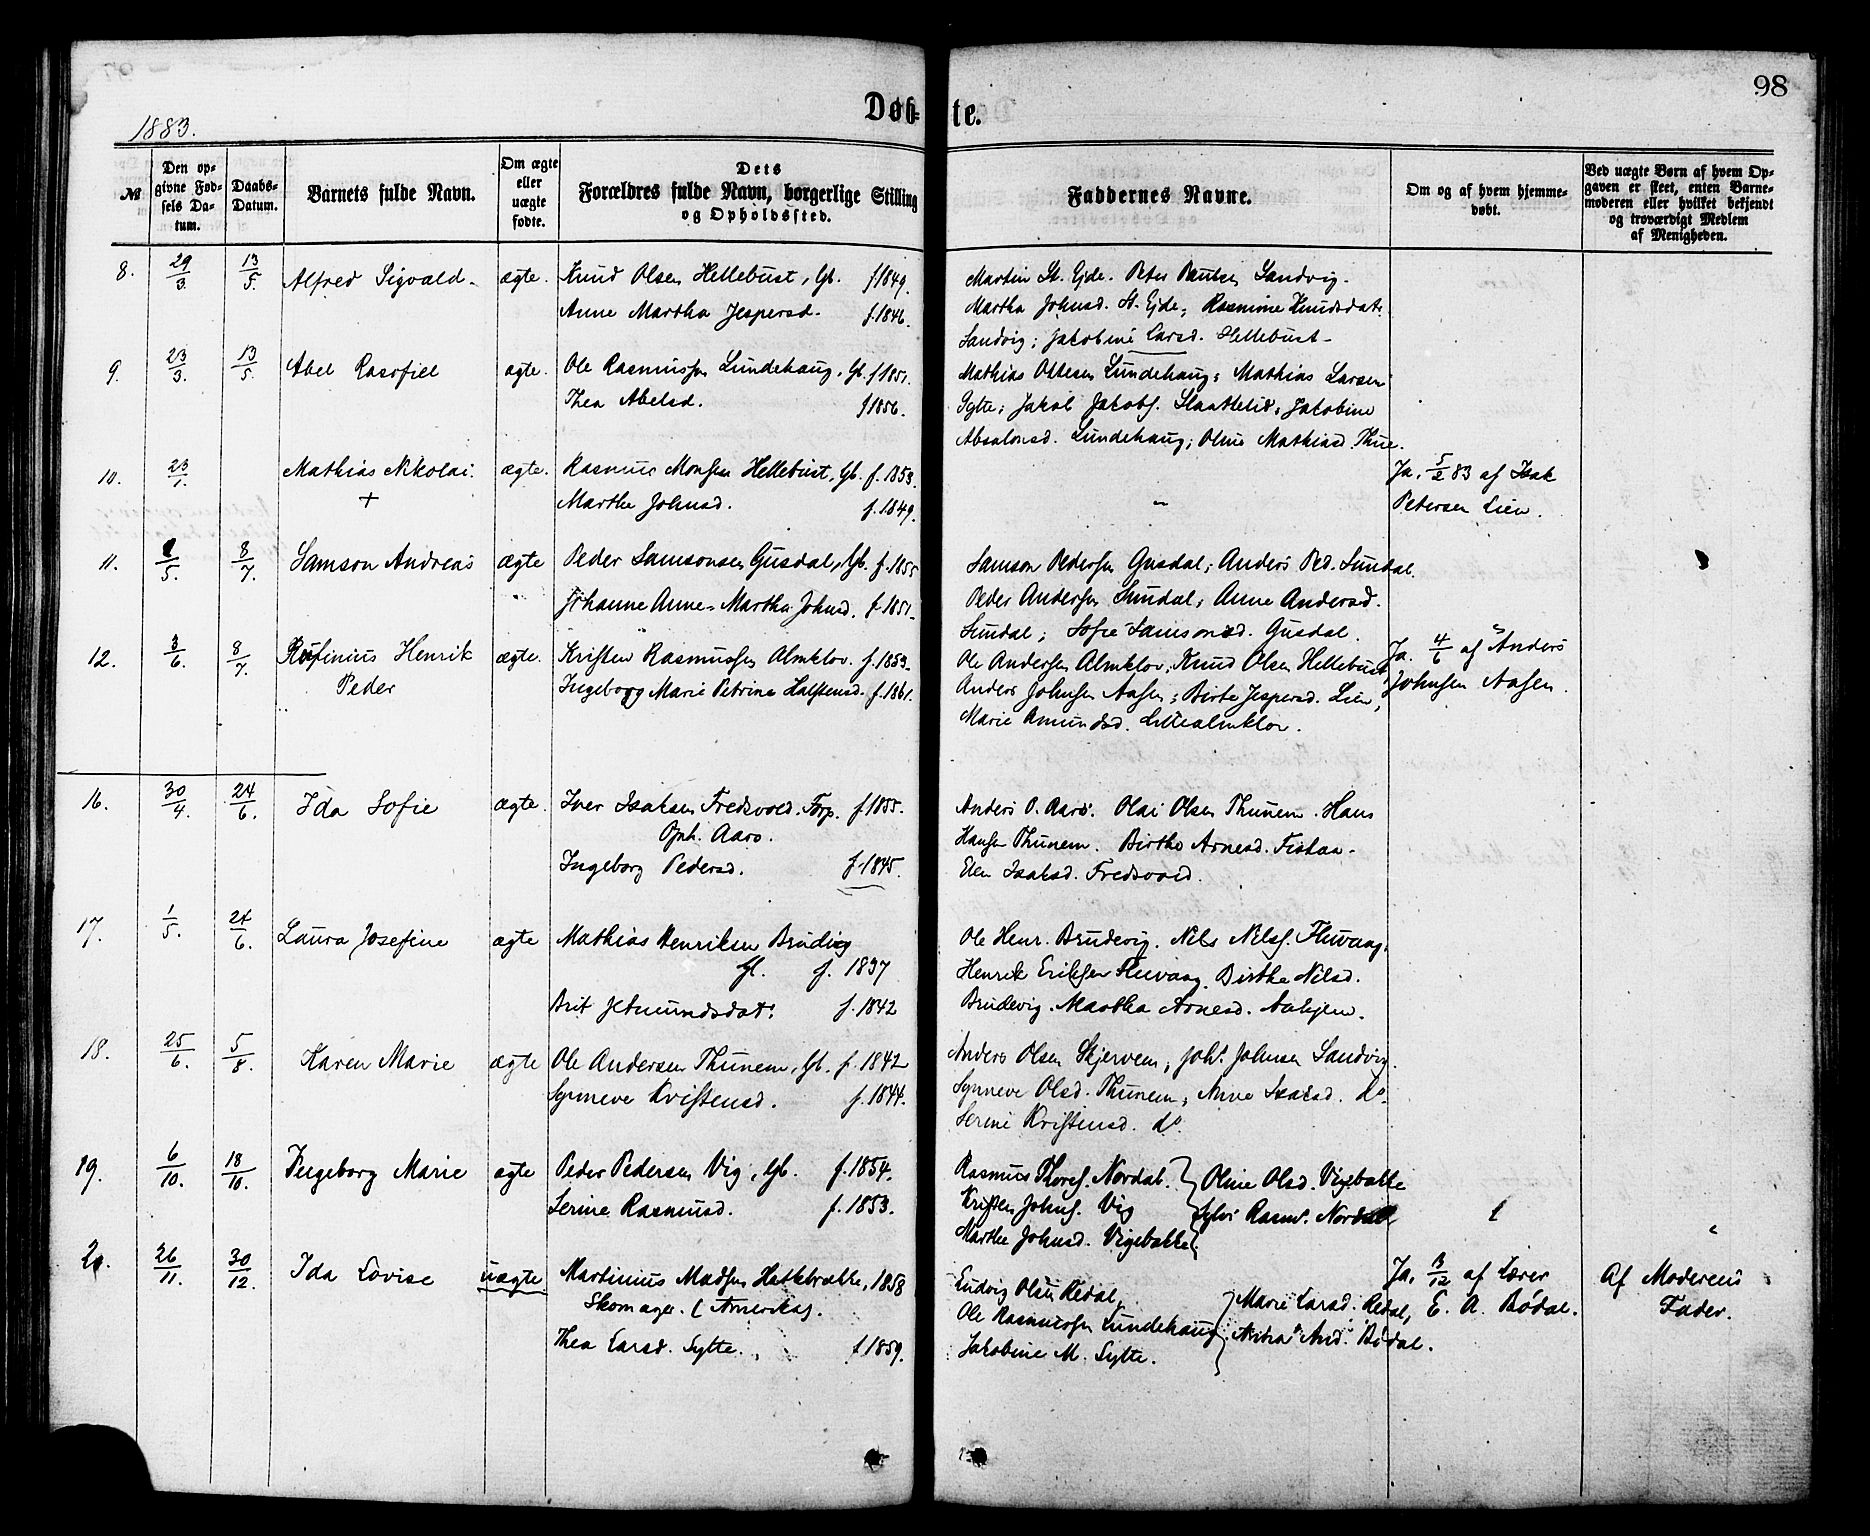 98
Døb-te.
1883.
№
Den opgivne Fødsels Datum.
Daabs-Datum.
Barnets fulde Navn.
Om ægte eller uægte fødte.
Dets Forældres fulde Navn, borgerlige Stilling og Opholdssted.
Faddernes Navne.
Om og af hvem hjemmedøbt.
Ved uægte Børn af hvem Opgaven er skeet, enten Barnemoderen eller hvilket bekjendt og troværdigt Medlem af Menigheden.
8. 29/3. 13/5. Alfred Sigvald. ægte. Knud Olsen Hellebust, Gb. f 1849.
Anne Martha Jespersd. f. 1846.
Martin St. Ejde. Peter Paulsen Sandvig.
Martha Johnsd. St. Ejde, Rasmine Knudsdat.
Sandvig; Jakobine Larsd. Hellebust.
9. 23/3. 13/5. Abel ægte. Ole Rasmussen Lundehaug, Gb. f 1851.
Thea Abelsd. f 1856.
Mathias Ottesen Lundehaug; Mathias Larsen
Sylte; Jakob Jakobs. Slaattelid; Jakobine
Absalonsd. Lundehaug; Oline Mathiasd. Thue.
10. 23/1. Mathias Nikolai. ægte. Rasmus Monsen Hellebust, Gb. f. 1853.
+ Marthe Johnsd. f. 1849.
Ja. 5/2 83 af Isak
Petersen Lien.
11. /5. 8/7. Samson Andreas ægte Peder Samsonsen Gusdal, Gb. f. 1855
Johanne Anne-Martha Johnsd. f. 1851.
Samson Pedersen Gusdal; Anders Ped. Sundal.
Peder Andersen Sundal; Anne Andersd.
Sundal; Sofie Samsonsd. Gusdal.
12. 3/6. 8/7. Rufinius Henrik ægte. Kristen Rasmussen Almklov. f. 1859.
Peder Ingeborg Marie Petrine Halstensd. f. 1861.
Ole Andersen Almklov; Knud Olsen Hellebust,
Anders Johnsen Aasen; Birte Jespersd. Lien,
Marie Amundsd. Lillealmklov.
Ja. 4/6 af Anders
Johnsen Aasen.
16. 30/4. 24/6. Ida Sofie ægte. Iver Isaksen Fredsvold. Forp. f 1855.
Oph. Aarø.
Ingeborg Pedersd. f. 1845.
Anders O. Aarø. Olai Olsen Thunem. Hans
Hansen Thunem. Birthe Arnesd. Fiskaa.
Elen Isaksd. Fredsvold.
17. 1/5. 24/6. Laura Josefine ægte Mathias Henriksen Brudevig
Gb. f. 1837
Brit Jetmundsdat. f. 1842
Ole Henr. Brudevig. Nils Nilss. Fluvaag.
Henrik Eriksen Fluvaag. Birthe Nilsd.
Brudevig. Martha Arnesd. Aahjem.
18. 25/6. 5/8. Karen Marie ægte Ole Andersen Thunem, Gb. f. 1842
Synneve Kristensd. f. 1844.
Anders Olsen Skjerveen; Joh. Johnsen Sandvig.
Synneve Olsd. Thunem; Anne Isaksd. do.
Serine Kristensd. do.
19. 6/10. 18/10. Ingeborg Marie ægte Peder Pedersen Vig, Gb. f. 1854.
Serine Rasmusd. f. 1853.
Rasmus Thores. Nordal. } Oline Olsd. Vigebakke
Kristen Johns. Vig Sylvi Rasm. Nordal
Marthe Johnsd. Vigebakke.
20. 26/11. 30/12. Ida Lovise uægte Martinius Madsen Hatlebrække, 1858
Skomager. (Amerika).
Thea Larsd. Sylte. f 1859.
Ludvig Olsen Redal, } Marie Larsd. Redal,
Ole Rasmussen Lundehaug, And. Bødal.
Jakobine M. Sylte.
Ja. 3/12 af Lærer
E. A. Bødal.
Af Moderens
Fader.